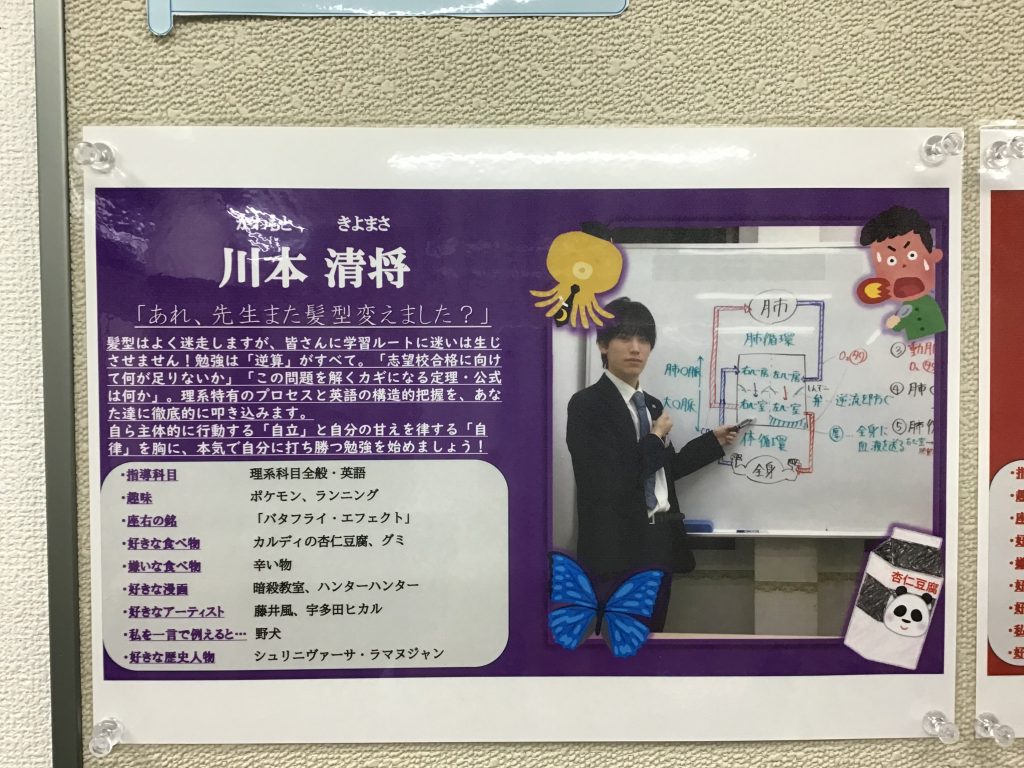 かわもと きよまさ
川本 清将
「あれ、先生また髪型変えました？」
髪型はよく迷走しますが、皆さんに学習ルートに迷いは生じ
させません！勉強は「逆算」がすべて。「志望校合格に向け
て何が足りないか」「この問題を解くカギになる定理・公式
は何か」。理系特有のプロセスと英語の構造的把握を、あな
た達に徹底的に叩き込みます。
自ら主体的に行動する「自立」と自分の甘えを律する「自
律」を胸に、本気で自分に打ち勝つ勉強を始めましょう！
・指導科目 理系科目全般・英語
・趣味 ポケモン、ランニング
・座右の銘 「バタフライ・エフェクト」
・好きな食べ物 カルディの杏仁豆腐、グミ
・嫌いな食べ物 辛い物
・好きな漫画 暗殺教室、ハンターハンター
・好きなアーティスト 藤井風、宇多田ヒカル
・私を一言で例えると… 野犬
・好きな歴史人物 シュリニヴァーサ・ラマヌジャン
肺
肺循環
肺〇脈
大〇脈
右心房 左心房
右心室 左心室
体循環
全身
弁 逆流を防ぐ
… 全身に
血液を送る
③ 動脈
④ 肺〇
⑤ 肺
杏仁豆腐